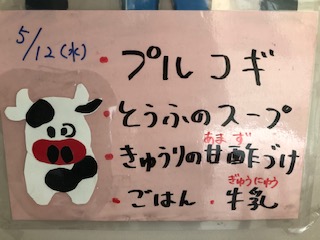 5/12(水)
・プルコギ
・とうふのスープ
あま ず
・きゅうりの甘酢づけ
ぎゅうにゅう
・ごはん・牛乳